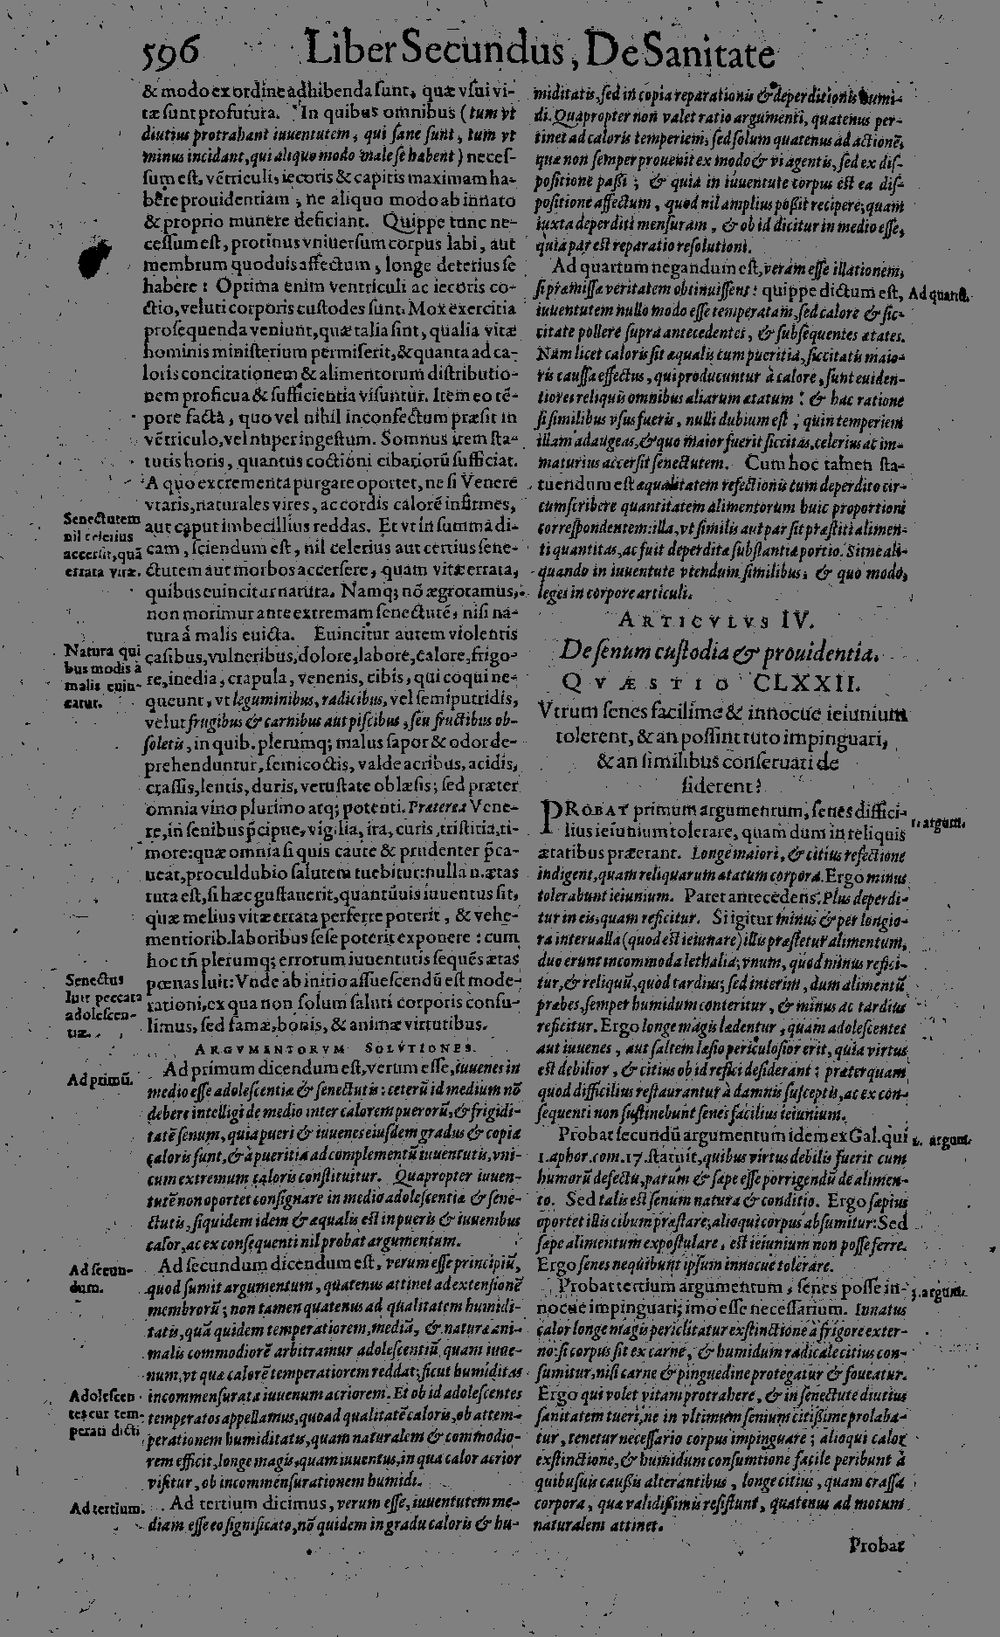 596 Liber Secundus, De Sanitate
& modo ex ordine adhibenda sunt, quæ vsui vi-
tæ sunt profutura. In quibus omnibus (tum vt
diutius protrahant iuuentutem, qui sane sunt, tum vt
minus incidant, qui aliquo modo male se habent) neces-
sum est, vẽtriculi, iecoris & capitis maximam ha-
bere prouidentiam, ne aliquo modo ab innato
& proprio munere deficiant. Quippe tunc ne-
cessum est, protinus vniuersum corpus labi, aut
membrum quoduis affectum, longe deterius se
habere: Optima enim ventriculi ac iecoris co-
ctio, veluti corporis custodes sunt. Mox exercitia
prosequenda veniunt, quæ talia sint, qualia vitæ
hominis ministerium permiserit, & quanta ad ca-
loris concitationem & alimentorum distributio-
nem proficua & sufficientia visuntur. Item eo tẽ-
pore facta, quo vel nihil inconfectum præsit in
vẽtriculo, vel nuper ingestum. Somnus item sta-
tutis horis, quantus coctioni cibariorũ sufficiat.
A quo excrementa purgare oportet, ne si Venere
vtaris, naturales vires, ac cordis calorẽ infirmes,
aut caput imbecillius reddas. Et vt in summa di-
cam, sciendum est, nil celerius aut certius sene-
ctutem aut morbos accersere, quam vitæ errata,
quibus euincitur natura. Namq; nõ ægrotamus,
non morimur ante extremam senectutẽ, nisi na-
tura à malis euicta. Euincitur autem violentis
casibus, vulneribus, dolore, labore, calore, frigo-
re, inedia, crapula, venenis, cibis, qui coqui ne-
queunt, vt leguminibus, radicibus, vel semiputridis,
velut frugibus & carnibus aut piscibus, seu fructibus ob-
soletis, in quib. plerumq; malus sapor & odor de-
prehenduntur, semicoctis, valde acribus, acidis,
crassis, lentis, duris, vetustate oblæsis; sed præter
omnia vino plurimo atq; potenti. Præterea Vene-
re, in senibus p̃cipue, vigilia, ira, curis, tristitia, ti-
more: quæ omnia si quis caute & prudenter p̃ca-
ueat, proculdubio salutem tuebitur: nulla n. ætas
tuta est, si hæc gustauerit, quantũuis iuuentus sit,
quæ melius vitæ errata perferre poterit, & vehe-
mentiorib. laboribus sese poterit exponere: cum
hoc tñ plerumq; errorum iuuentutis sequẽs ætas
pœnas luit: Vnde ab initio assuescendũ est mode-
rationi, ex qua non solum saluti corporis consu-
limus, sed famæ, bonis, & animæ virtutibus.
Senectutem
nil celerius
accersit, quã
errata vitæ.
Natura qui
bus modis à
malis euin-
catur.
Senectus
luit peccata
adolescen-
tiæ.
ARGVMENTORVM SOLVTIONES.
Ad primum dicendum est, verum esse, iuuenes in
medio esse adolescentiæ & senectutis: ceterũ id medium nõ
debere intelligi de medio inter calorem puerorũ, & frigidi-
tatẽ senum, quia pueri & iuuenes eiusdem gradus & copiæ
caloris sunt, & à pueritia ad complementũ iuuentutis, vni-
cum extremum caloris constituitur. Quapropter iuuen-
tutẽ non oportet consignare in medio adolescentiæ & sene-
ctutis, siquidem idem & æqualis est in pueris & iuuenibus
calor, ac ex consequenti nil probat argumentum.
Ad secundum dicendum est, verum esse principiũ,
quod sumit argumentum, quatenus attinet ad extensionẽ
membrorũ; non tamen quatenus ad qualitatem humidi-
tatis, quã quidem temperatiorem, mediã, & naturæ ani-
malis commodiorẽ arbitramur adolescentiũ quam iuue-
num, vt quæ calorẽ temperatiorem reddat; sicut humiditas
incommensurata iuuenum acriorem. Et ob id adolescentes
temperatos appellamus, quoad qualitatẽ caloris, ob attem-
perationem humiditatis, quam naturalem & commodio-
rem efficit, longe magis, quam iuuentus, in qua calor acrior
visitur, ob incommensurationem humidi.
Ad tertium dicimus, verum esse, iuuentutem me-
diam esse eo significato, nõ quidem in gradu caloris & hu-
Ad primũ.
Ad secun-
dum.
Adolescen
tes cur tem-
perati dicti
Ad tertium.
miditatis, sed in copia reparationis & deperditionis humi-
di. Quapropter non valet ratio argumenti, quatenus per-
tinet ad caloris temperiem; sed solum quatenus ad actionẽ,
quæ non semper prouenit ex modo & vi agentis, sed ex dis-
positione passi; & quia in iuuentute corpus est ea dis-
positione affectum, quod nil amplius possit recipere, quam
iuxta deperditi mensuram, & ob id dicitur in medio esse,
quia par est reparatio resolutioni.
Ad quartum negandum est, veram esse illationem,
si præmissa veritatem obtinuissent: quippe dictum est,
iuuentutem nullo modo esse temperatam, sed calore & sic-
citate pollere supra antecedentes, & subsequentes ætates.
Nam licet caloris sit æqualis cum pueritia, siccitatis maio-
ris caussa effectus, qui producuntur à calore, sunt euiden-
tiores reliquis omnibus aliarum ætatum: & hac ratione
si similibus vsus fueris, nulli dubium est, quin temperiem
illam adaugeas, & quo maior fuerit siccitas, celerius ac im-
maturius accersit senectutem. Cum hoc tamen sta-
tuendum est æqualitatem refectionis cum deperdito cir-
cumscribere quantitatem alimentorum huic proportioni
correspondentem: illa, vt similis aut par sit præstiti alimen-
ti quantitas, ac fuit deperdita substantiæ portio. Sitne ali-
quando in iuuentute vtendum similibus, & quo modo,
leges in corpore articuli.
Ad quartũ.
ARTICVLVS IV.
De senum custodia & prouidentia.
QVÆSTIO CLXXII.
Vtrum senes facilime & innocue ieiunium
tolerent, & an possint tuto impinguari,
& an similibus conseruari de
siderent?
PROBAT primum argumentum, senes diffici-
lius ieiunium tolerare, quam dum in reliquis
ætatibus præerant. Longe maiori, & citius refectione
indigent, quam reliquarum ætatum corpora. Ergo minus
tolerabunt ieiunium. Patet antecedens. Plus deperdi-
tur in eis, quam reficitur. Si igitur minus & per longio-
ra interualla (quod est ieiunare) illis præstetur alimentum,
duo erunt incommoda lethalia; vnum, quod minus refici-
tur, & reliquũ, quod tardius; sed interim, dum alimentũ
præbes, semper humidum conteritur, & minus ac tardius
reficitur. Ergo longe magis lædentur, quam adolescentes
aut iuuenes, aut saltem læsio periculosior erit, quia virtus
est debilior, & citius ob id refici desiderant: præterquam
quod difficilius restaurantur à damnis susceptis, ac ex con-
sequenti non sustinebunt senes facilius ieiunium.
Probat secundũ argumentum idem ex Gal. qui
1. aphor. com. 17. statuit, quibus virtus debilis fuerit cum
humorũ defectu, parum & sæpe esse porrigendũ de alimen-
to. Sed talis est senum natura & conditio. Ergo sæpius
oportet illis cibum præstare; alioqui corpus absumitur: Sed
sæpe alimentum expostulare, est ieiunium non posse ferre.
Ergo senes nequibunt ipsum innocue tolerare.
Probat tertium argumentum, senes posse in-
nocue impinguari; imo esse necessarium. Innatus
calor longe magis periclitatur exstinctione à frigore exter-
no: si corpus sit ex carne, & humidum radicale citius con-
sumitur, nisi carne & pinguedine protegatur & foueatur.
Ergo qui volet vitam protrahere, & in senectute diutius
sanitatem tueri, ne in vltimum senium citissime prolaba-
tur, tenetur necessario corpus impinguare; alioqui calor
exstinctione, & humidum consumtione facile peribunt à
quibusuis caussis alterantibus, longe citius, quam crassa
corpora, quæ validissimis resistunt, quatenus ad motum
naturalem attinet.
1. argum.
2. argum.
3. argum.
Probat